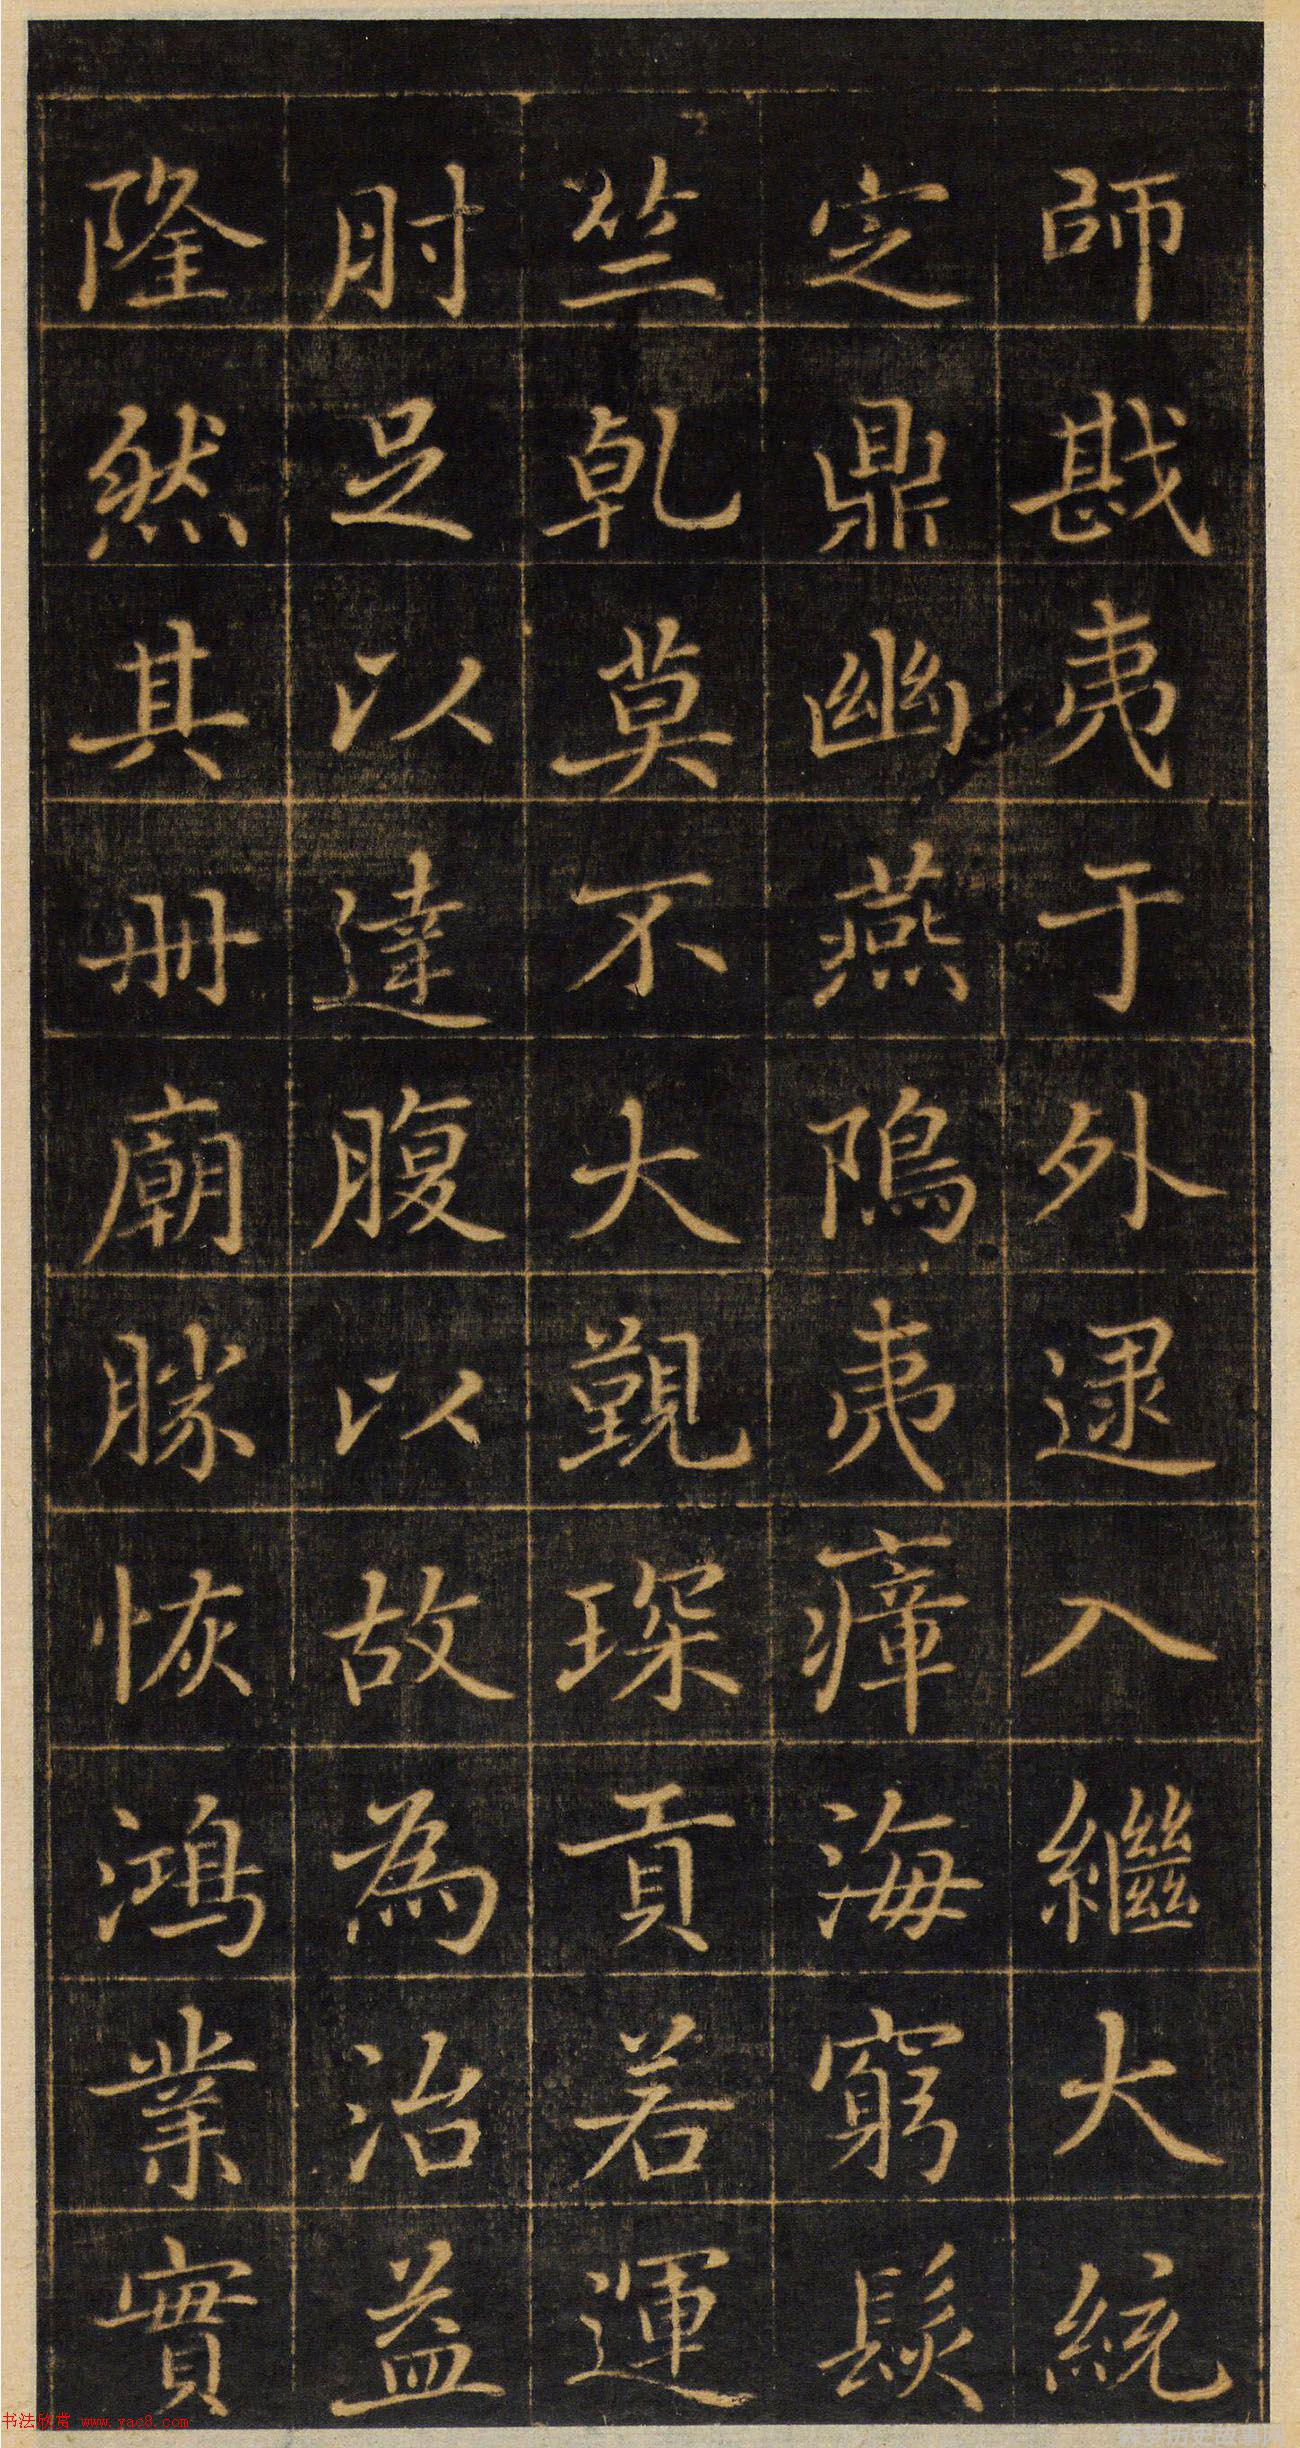 師戡夷于外逮入繼大統
定鼎幽燕隖夷瘴海窮髮
竺乾莫不大覲琛貢若運
肘足以達腹以故為治益
隆然其冊廟勝恢鴻業實
书法欣赏 www.yac8.com